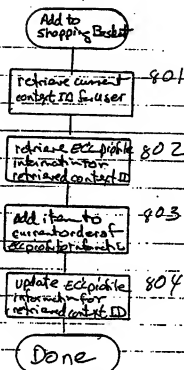 Add to
shopping Basket
retrieve current
context ID for user
801
retrieve EC profile
information for
retrieved context ID
802
add item to
current orders of
EC profile information
803
update EC profile
information for
retrieved context ID
804
Done